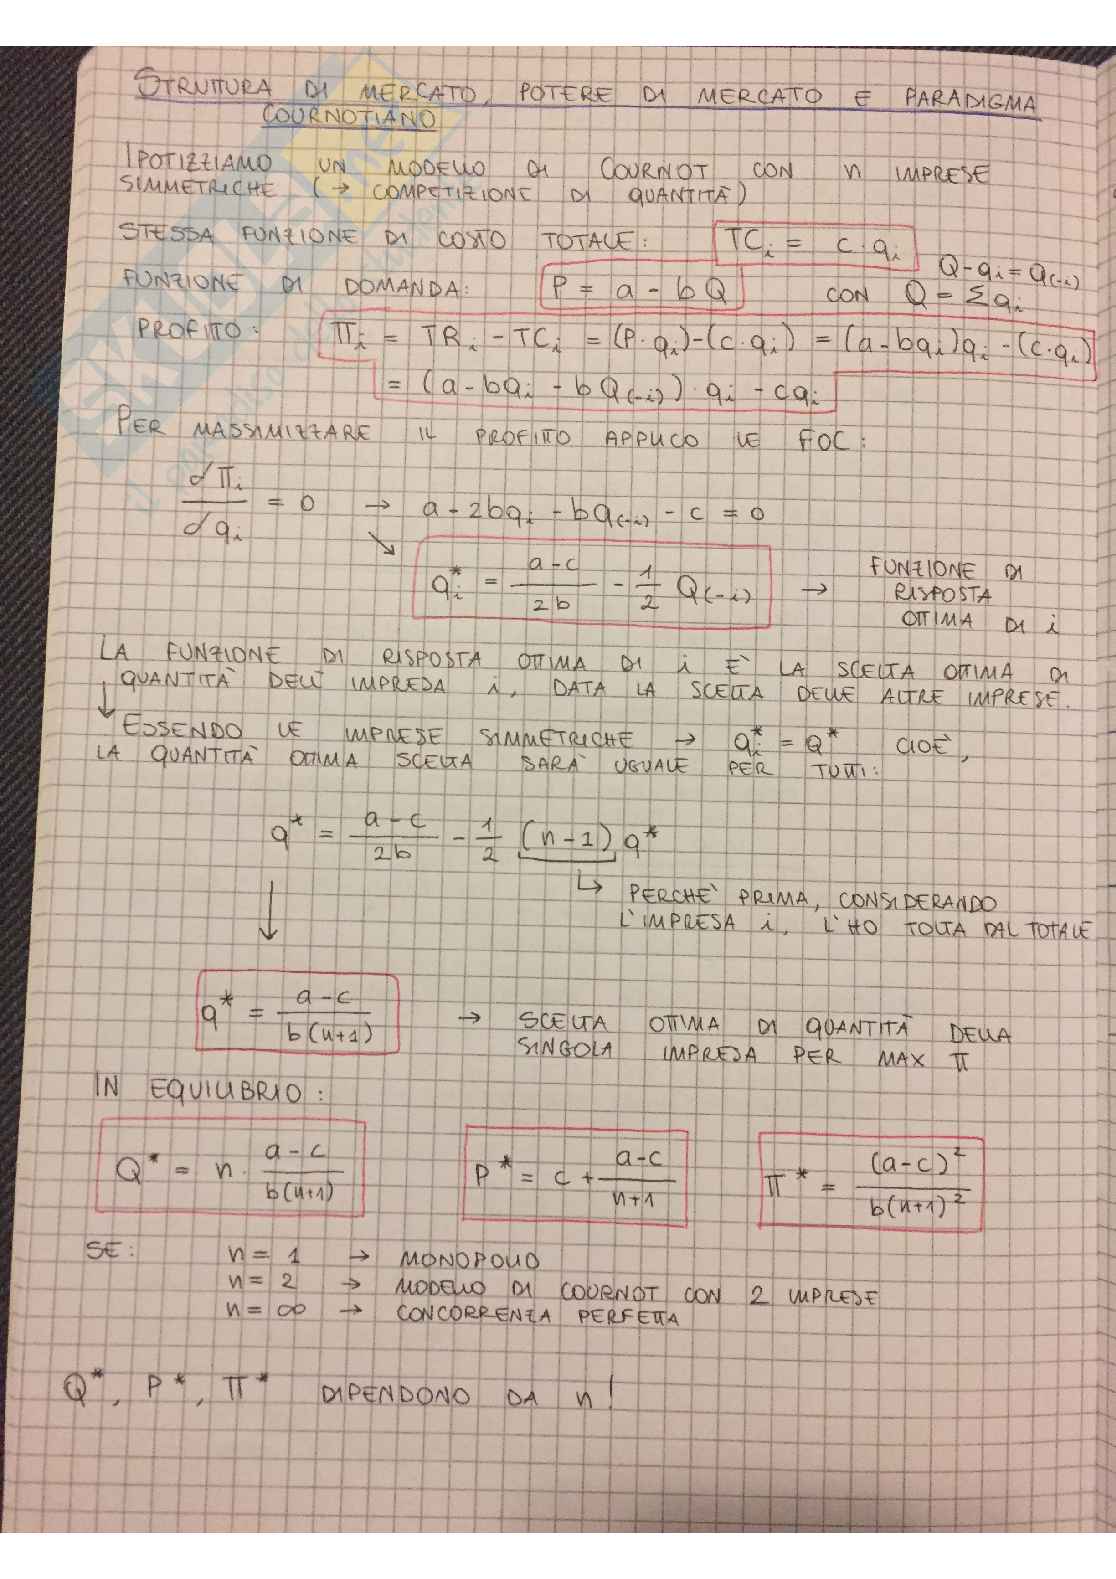 STRUTTURA DI MERCATO, POTERE DI MERCATO E PARADIGMA
COURNOTIANO
IPOTIZZIAMO UN MODELLO DI COURNOT CON n IMPRESE
SIMMETRICHE (→ COMPETIZIONE DI QUANTITÀ)
STESSA FUNZIONE DI COSTO TOTALE: TCi = c·qi
Q-qi = Q(-i)
FUNZIONE DI DOMANDA: P = a - bQ CON Q = Σqi
PROFITO: Πi = TRi - TCi = (P·qi)-(c·qi) = (a-bqi)qi - (c·qi)
= (a-bqi - bQ(-i))·qi - cqi
PER MASSIMIZZARE IL PROFITTO APPLICO LE FOC:
dΠi/dqi = 0 → a - 2bqi - bQ(-i) - c = 0
qi* = (a-c)/2b - 1/2 Q(-i) → FUNZIONE DI
RISPOSTA
OTTIMA DI i
LA FUNZIONE DI RISPOSTA OTTIMA DI i È LA SCELTA OTTIMA DI
QUANTITÀ DELL'IMPRESA i, DATA LA SCELTA DELLE ALTRE IMPRESE.
↓ ESSENDO LE IMPRESE SIMMETRICHE → qi* = q* CIOÈ,
LA QUANTITÀ OTTIMA SCELTA SARÀ UGUALE PER TUTTI:
q* = (a-c)/2b - 1/2 (n-1) q*
↳ PERCHÈ PRIMA, CONSIDERANDO
L'IMPRESA i, L'HO TOLTA DAL TOTALE
↓
q* = (a-c)/b(n+1) → SCELTA OTTIMA DI QUANTITÀ DELLA
SINGOLA IMPRESA PER MAX Π
IN EQUILIBRIO:
Q* = n · (a-c)/b(n+1) P* = c + (a-c)/(n+1) Π* = (a-c)²/b(n+1)²
SE: n = 1 → MONOPOLIO
n = 2 → MODELLO DI COURNOT CON 2 IMPRESE
n = ∞ → CONCORRENZA PERFETTA
Q*, P*, Π* DIPENDONO DA n!